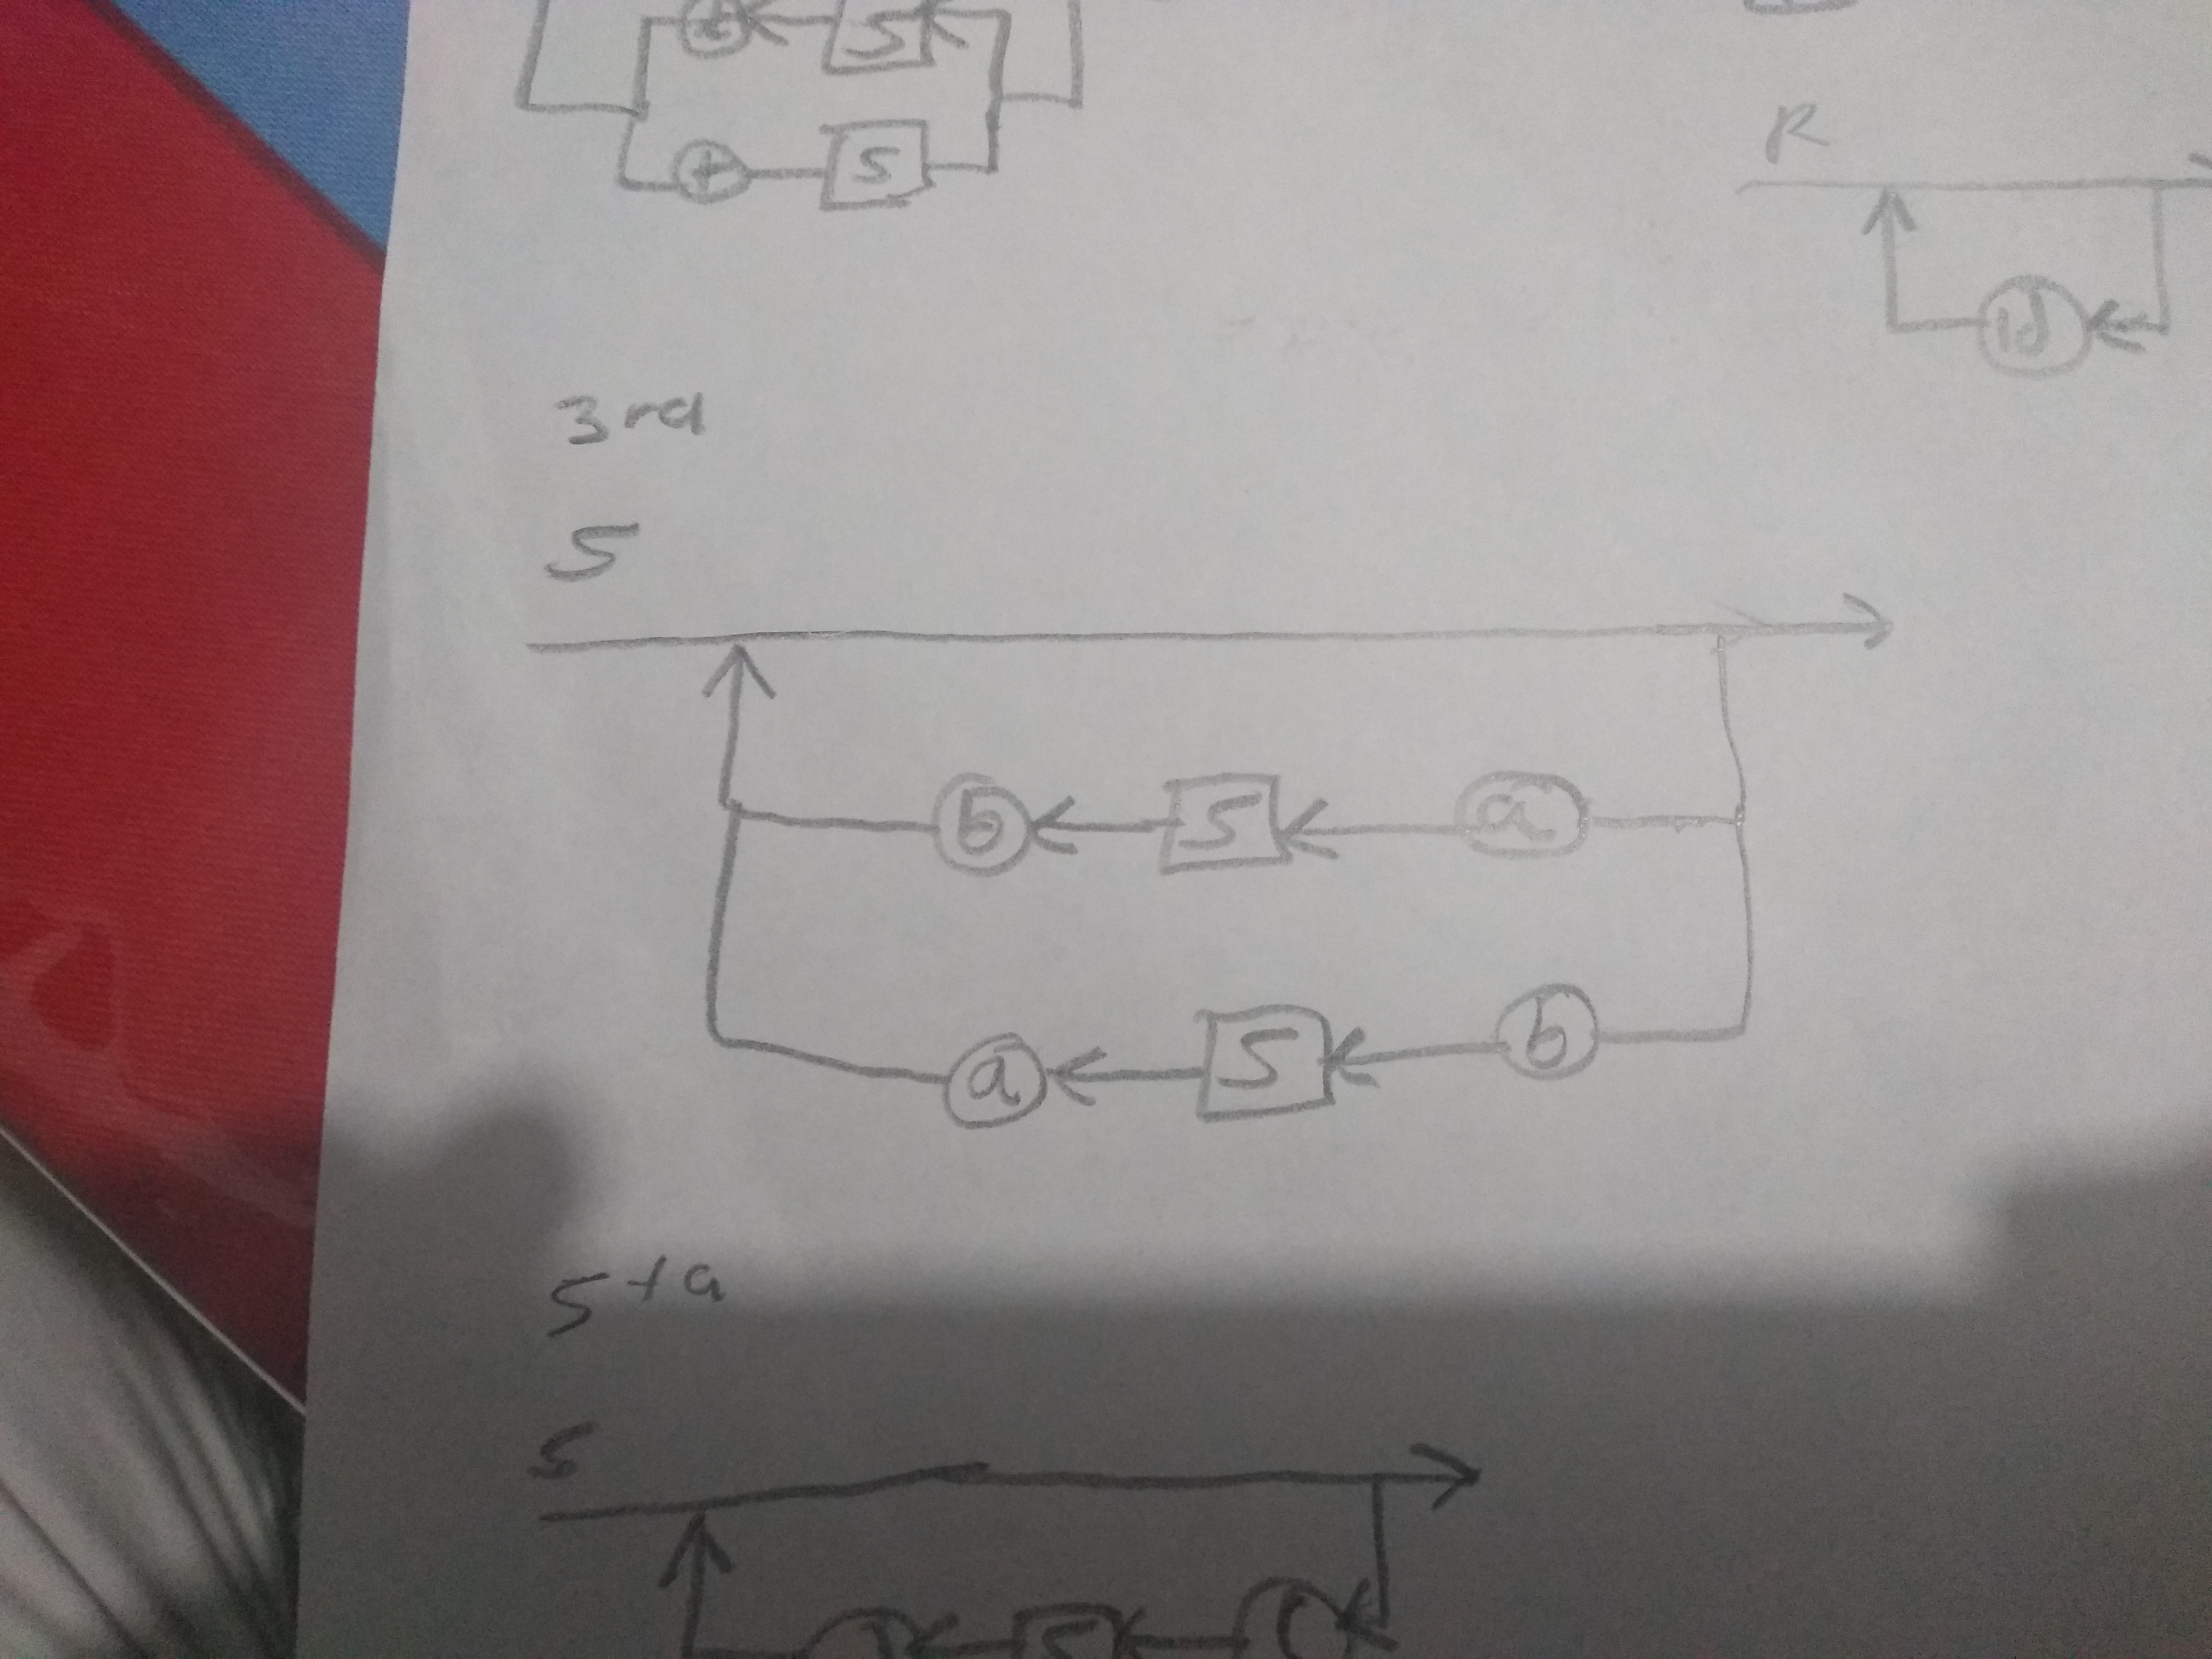 + S
+ S
R
id
3rd
S
b S a
a S b
5ta
S
S